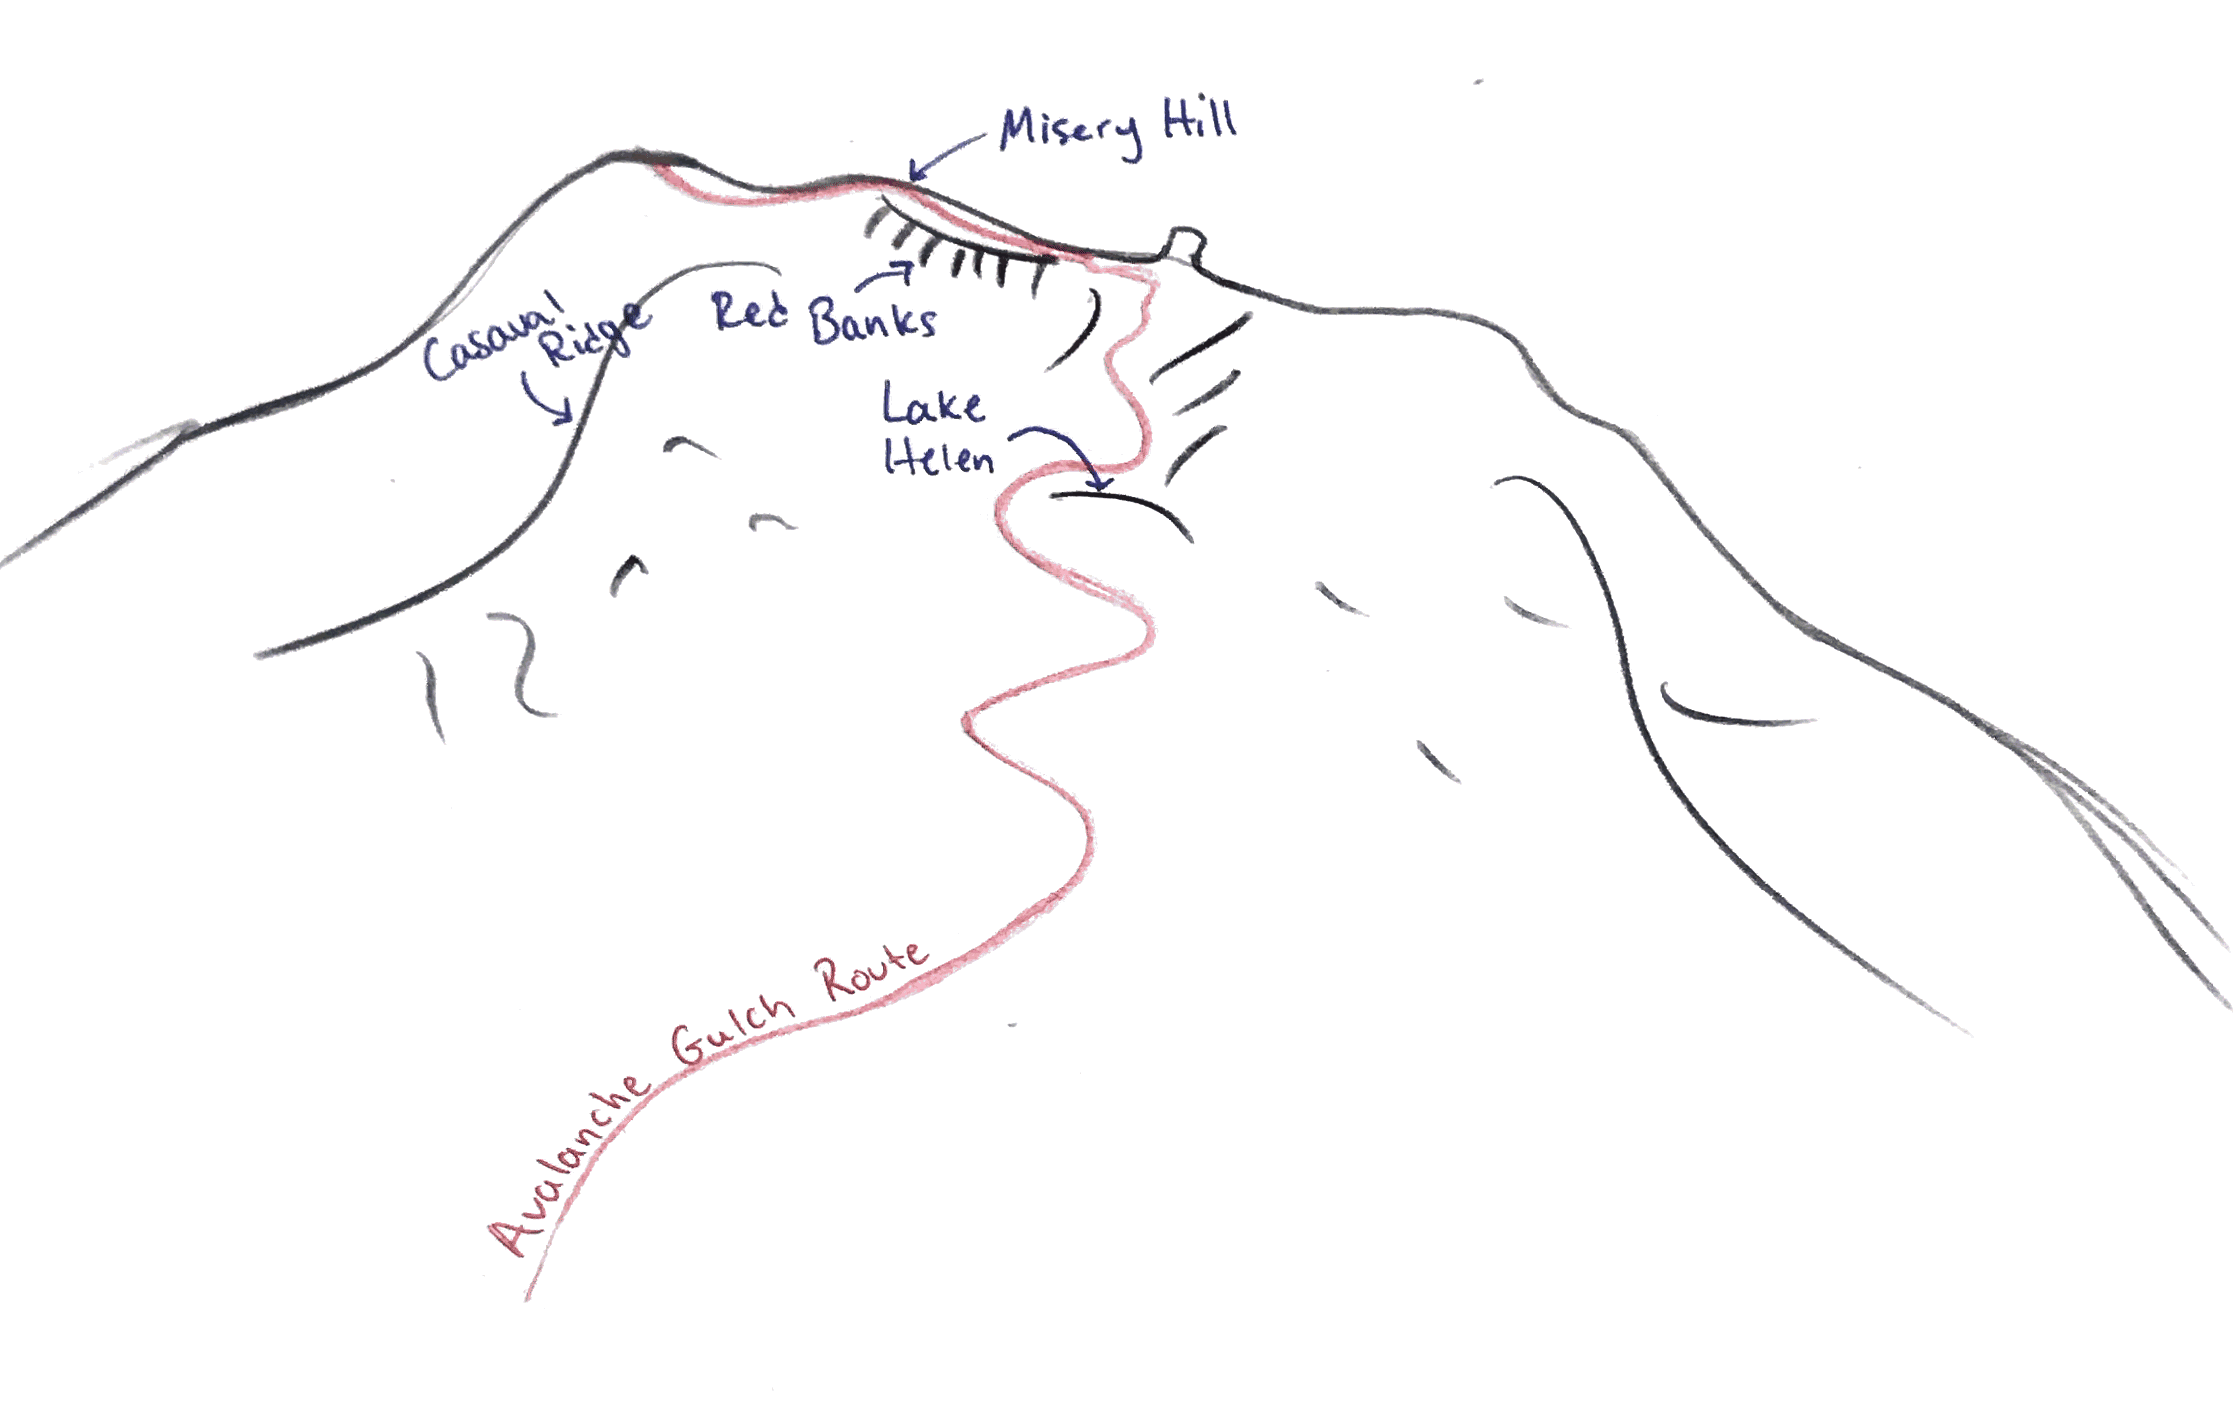 Misery Hill
Casaval
Ridge
Red Banks
Lake
Helen
Avalanche Gulch Route